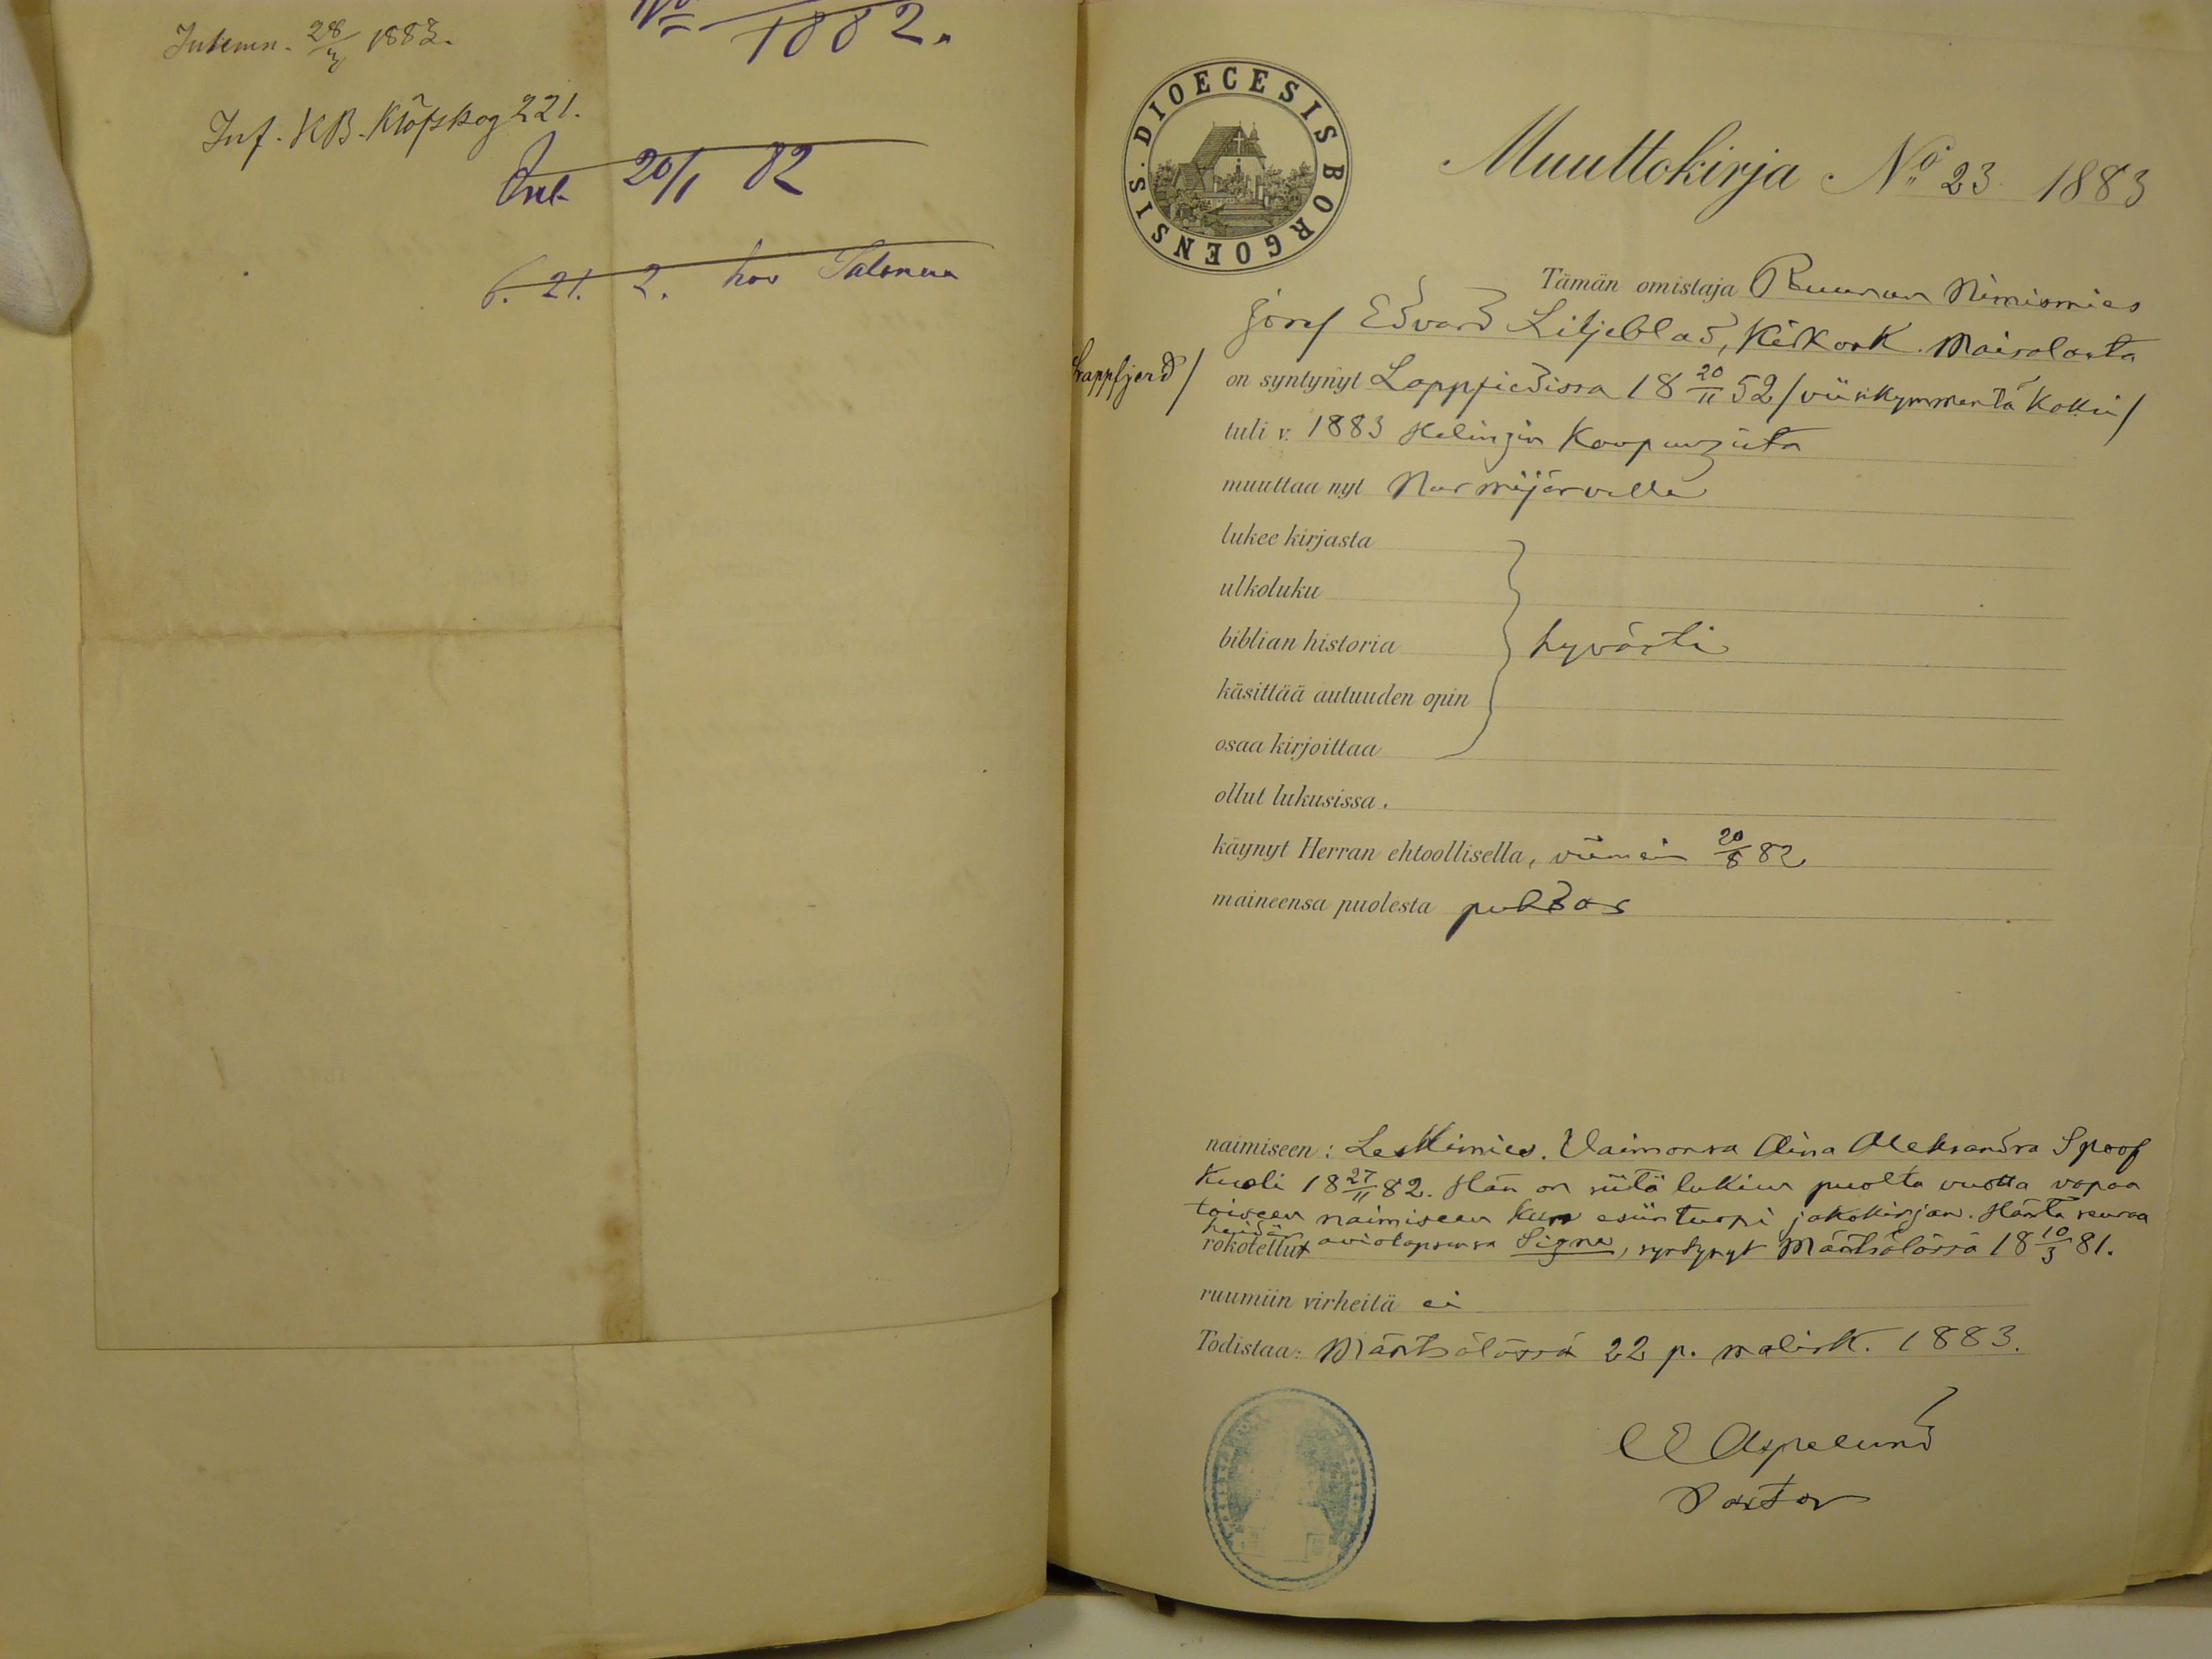 Inlemn. 28/3 1883.
Inf. KB. Klöfskog 221.
No
1882.
Anl. 20/1 82
6. 21. 2. hos Salenius
DIOECESIS BORGOENSIS.
Muuttokirja No 23 1883
Tämän omistaja Ruunun Nimismies
Josef Edvard Liljeblad, Maisalasta
Lappfjerd/
on syntynyt Lappfiedissa 18 20/11 52 /viisikymmentä kaksi/
tuli v. 1883 Helsingin Kaupungista
muuttaa nyt Nurmijärvelle
lukee kirjasta
ulkoluku
biblian historia
hyvästi
käsittää autuuden opin
osaa kirjoittaa
ollut lukusissa.
käynyt Herran ehtoollisella, viimein 20/8 82
maineensa puolesta puhdas
naimiseen: Leskimies. Vaimonsa Aina Aleksandra Spoof
Kuoli 18 27/11 82. Hän on siitä lukien puolta vuotta vapaa
toiseen naimiseen kun esiin tuopi jakokirjan. Häntä seuraa
heidän
rokotettu aviolapsensa Signe, syntynyt Mäntsälässä 18 10/3 81.
ruumiin virheitä ei
Todistaa: Mäntsälässä 22 p. malisk. 1883.
Aspelund
Pastor